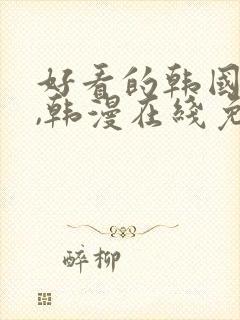 好看的韩国
,韩漫在线免
醉柳